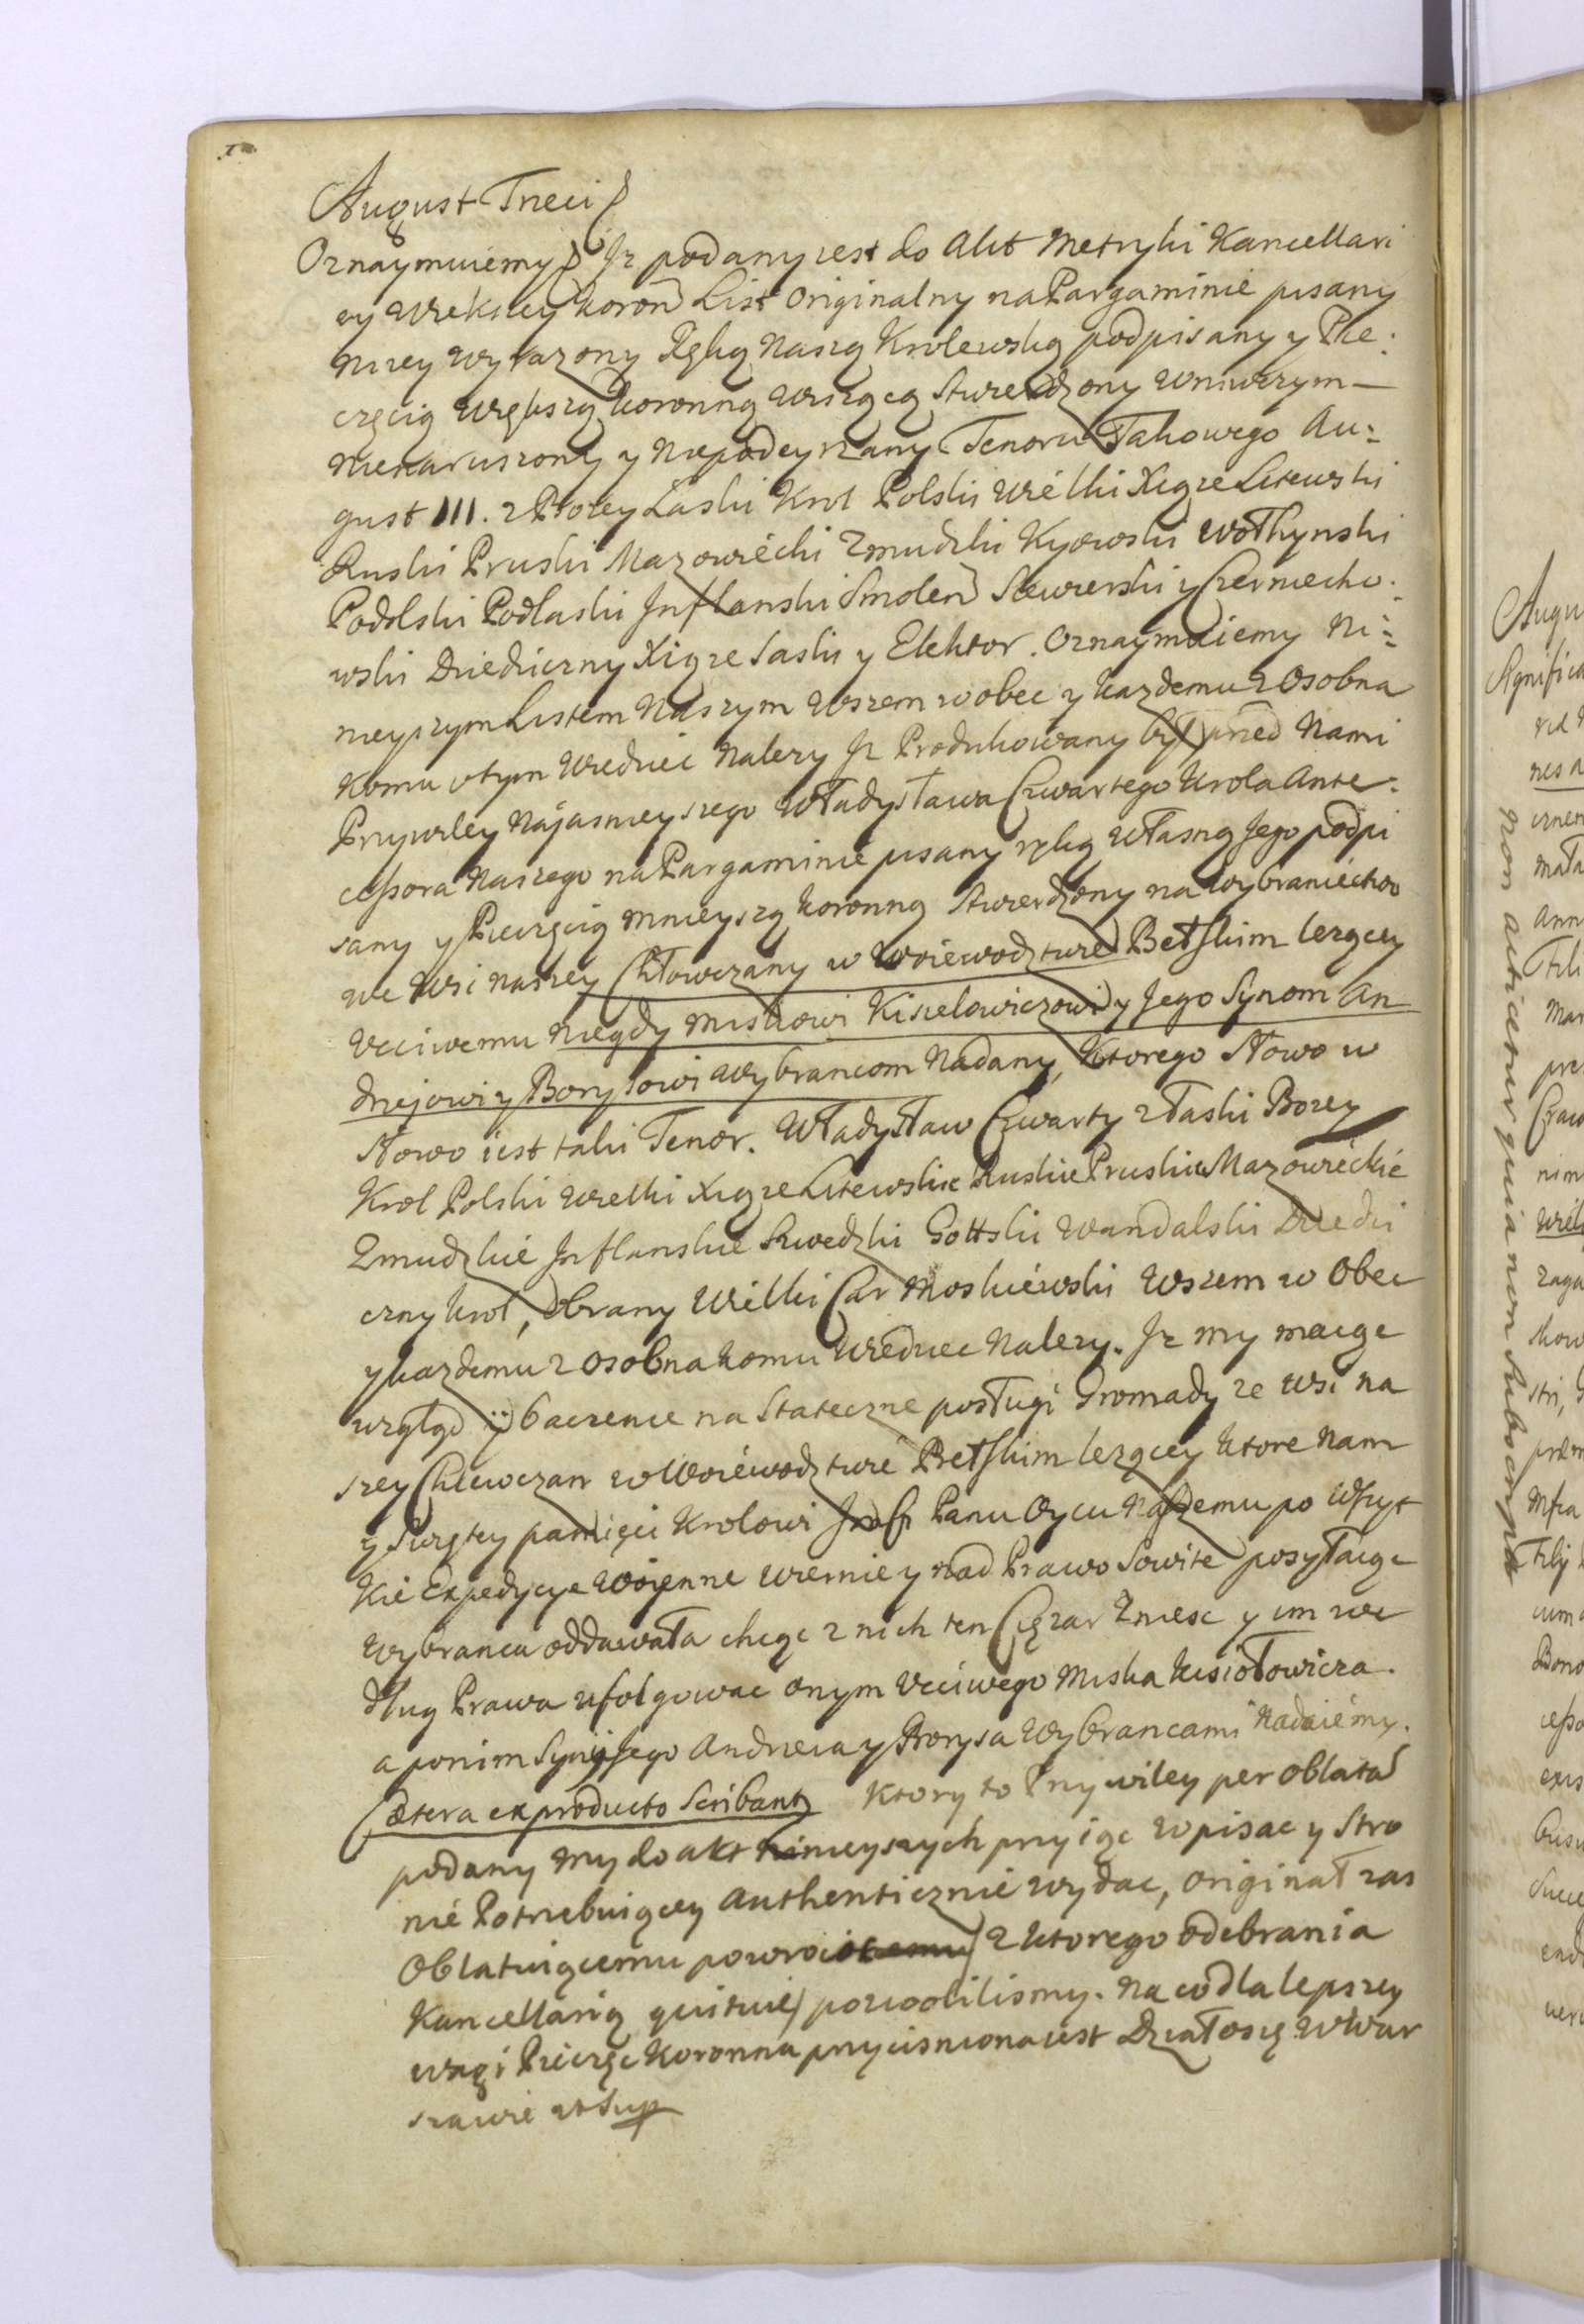 August Trzeci
Oznaymuiemy Jz podany iest do Akt Metryki Kancellari
ey Wiekszey Koron List Originalny na Pargaminie pisany
nizey wyrazony Ręką Naszą Krolewską podpisany y Pie:
częcią Większą Koronną Wiszącą stwierdzony wniwczym
nienaruszony y niepodeyrzany Tenoru Takowego Au:
gust III. z Bozey Łaski Krol Polski Wielki Xiąze Litewski
Ruski Pruski Mazowiecki Zmudzki Kyiowski Wołhynski
Podolski Podlaski Jnflanski Smolen Siewierski y Czerniecho:
wski Dziedziczny Xiąze Saski y Elektor. Oznaymuiemy Ni:
nieyszym Listem Naszym Wszem wobec y kazdemu z Osobna
Komu o tym Wiedziec Nalezy Jz Produkowany był przed Nami
Przywiley Nájasnieyszego Władysława Czwartego Krola Ante:
cessora Naszego na Pargaminie pisany ręką Własną Jego podpi
sany y Pieczęcią Mnieyszą Koronną stwierdzony na Wybraniectwo
we Wsi Naszey Chłowczany w Woiewodztwie Bełskim lezącey
Vcciwemu niegdy Miskowi Kisielowiczowi y Jego Synom An
drzejowi y Borysowi Wybrancom Nadany, Ktorego Słowo w
Słowo iest taki Tenor. Władysław Czwarty z łaski Bozey
Krol Polski Wielki Xiąze Litewskie Ruskie Pruskie Mazowieckie
Zmudzkie Jnflanskie Szwedzki Gottski Wandalski Dziedzi
czny Krol, Obrany Wielki Car Moskiéwski Wszem w Obec
y kazdemu z osobna komu Wiedziec Nalezy. Jz my maiąc
wzgląd y baczenie na Stateczne posługi Gromady ze Wsi na
szey Chlewczan w Woiéwodztwie Bełskim lezącey ktore Nam
y Swiętey pamięci Krolowi Jmsci Panu Oycu Naszemu po Wszyt
kie Expedycye Woienne Wiernie y nad Prawo Sowite posyłaiąc
Wybranca oddawała chcąc z nich ten Cięzar Zniesc y im we
dług Prawa ufolgowac Onym Vcciwego Miska Kisiołowicza.
a po nim Syny Jego Andrzeia y Borysa Wybrancami Nadaiémy.
Cætera ex producto Scribantz Ktory to Przywiley per Oblatã
podany my do akt ninieyszych przyiąc Wpisac y Stro
nie Potrzebuiącey Authenticznie wydac, Originał zas
Oblatuiącemu powroic z ktorego odebrania
Kancellarią quituie pozwolilismy. Na co dla lepszey
wagi Pieczęc Koronna przycisniona iest Działo się w War
szawie ut Sup